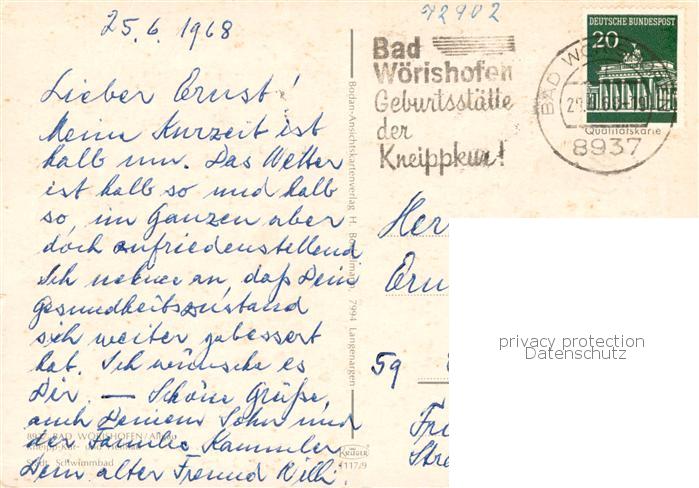 25.6.1968
72902
Lieber Ernst!
Meine Kurzeit ist
halb um. Das Wetter
ist halb so und halb
so, im Ganzen aber
doch zufriedenstellend
Ich nehme an, daß Dein
Gesundheitszustand
sich weiter gebessert
hat. Ich wünsche es
Dir. — Schöne Grüße,
auch Deinem Sohn und
der Familie Kammler
Dein alter Freund Willi
8939 BAD WÖRISHOFEN/Allgäu
Kneipp-Kur-
Städt. Schwimmbad
Bodan-Ansichtskartenverlag H. 7994 Langenargen
KRÜGER
1117/9
Bad
Wörishofen
Geburtsstätte
der
Kneippkur!
DEUTSCHE BUNDESPOST
20
BAD
Qualitätskarte
8937
Her
Ern
59
Fri
Str
privacy protection
Datenschutz